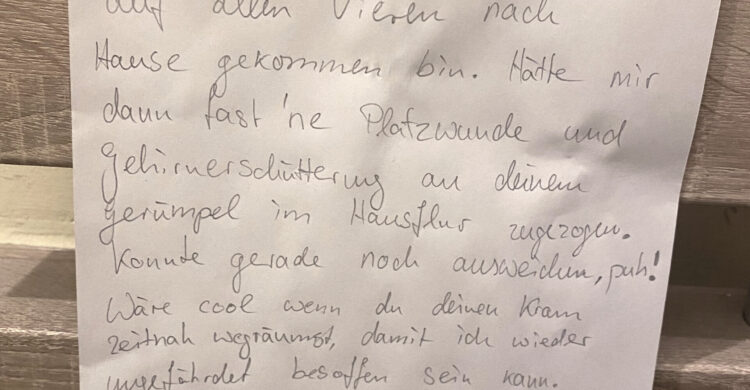 auf allen Vieren nach
Hause gekommen bin. Hätte mir
dann fast 'ne Platzwunde und
Gehirnerschütterung an deinem
Gerümpel im Hausflur zugezogen.
Konnte gerade noch ausweichen, puh!
Wäre cool wenn du deinen Kram
zeitnah wegräumst, damit ich wieder
ungefährdet besoffen sein kann.